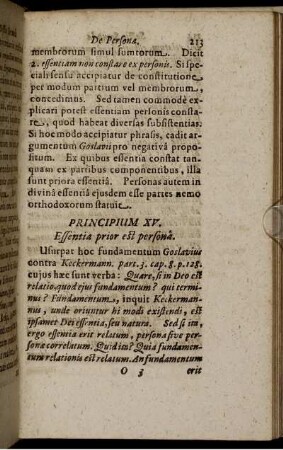 De Persona. 213
membrorum simul sumtorum. Dicit
2. essentiam non constare ex personis. Si spe-
ciali sensu accipiatur de constitutione
per modum partium vel membrorum,
concedimus. Sed tamen commodè ex-
plicari potest essentiam personis consta-
re, quod habeat diversas subsistentias.
Si hoc modo accipiatur phrasis, cadit ar-
gumentum Goslavii pro negativâ propo-
situm. Ex quibus essentia constat tan-
quam ex partibus componentibus, illa
sunt priora essentiâ. Personas autem in
divinâ essentiâ ejusdem esse partes nemo
orthodoxorum statuit.
PRINCIPIUM XV.
Essentia prior est personâ.
Usurpat hoc fundamentum Goslavius
contra Keckermann. part. 3. cap. 8. p. 128.
cujus hæc sunt verba: Quare, si in Deo est
relatio, quod ejus fundamentum? qui termi-
nus? Fundamentum, inquit Keckerman-
nus, unde oriuntur hi modi existendi, est
ipsamet Dei essentia, seu natura. Sed si ita,
ergo essentia erit relatum, persona sive per-
sonæ correlatum. Quid ita? Quia fundamen-
tum relationis est relatum. An fundamentum
O 3 erit